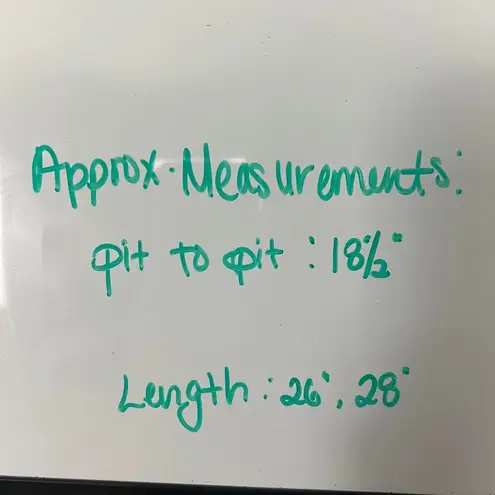 Approx. Measurements:
pit to pit : 18½"
Length : 26", 28"